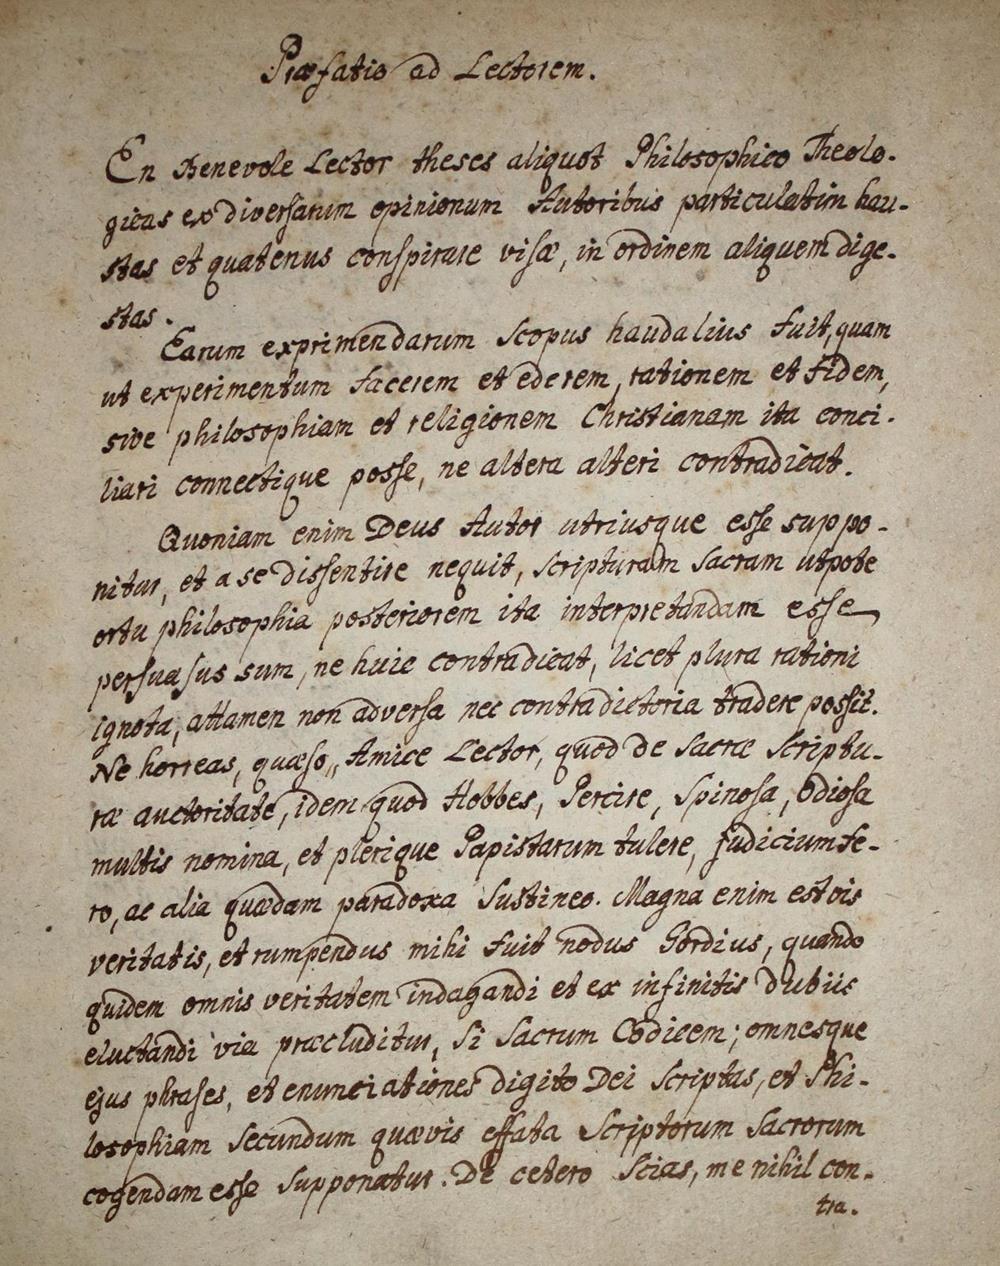 Præfatio ad Lectorem.
En Benevole Lector theses aliquot Philosophico Theolo-
gicas ex diversarum opinionum Autoribus particulatim hau-
stas et quatenus conspirare visæ, in ordinem aliquem dige-
stas.
Earum exprimendarum scopus haud alius fuit, quam
ut experimentum facerem et ederem, rationem et fidem,
sive philosophiam et religionem Christianam ita conci-
liari connectique posse, ne altera alteri contradicat.
Quoniam enim Deus Autor utriusque esse suppo-
nitur, et a se dissentire nequit, scripturam sacram utpote
ortu philosophia posteriorem ita interpretandam esse
persuasus sum, ne huic contradicat, licet plura rationi
ignota, attamen non adversa nec contradictoria tradere possit.
Ne horreas, quæso, Amice Lector, quod de sacræ scriptu-
ræ auctoritate, idem quod Hobbes, Pereire, Spinosa, odiosa
multis nomina, et plerique Papistarum tulere, judicium fe-
ro, ac alia quædam paradoxa sustineo. Magna enim est vis
veritatis, et rumpendus mihi fuit nodus Gordius, quando
quidem omnis veritatem indagandi et ex infinitis dubiis
eluctandi via præcluditur, si sacrum Codicem; omnesque
ejus phrases, et enunciationes digito Dei scriptas, et Phi-
losophiam secundum quævis effata scriptorum sacrorum
cogendam esse supponatur. De cetero scias, me nihil con-
tra.